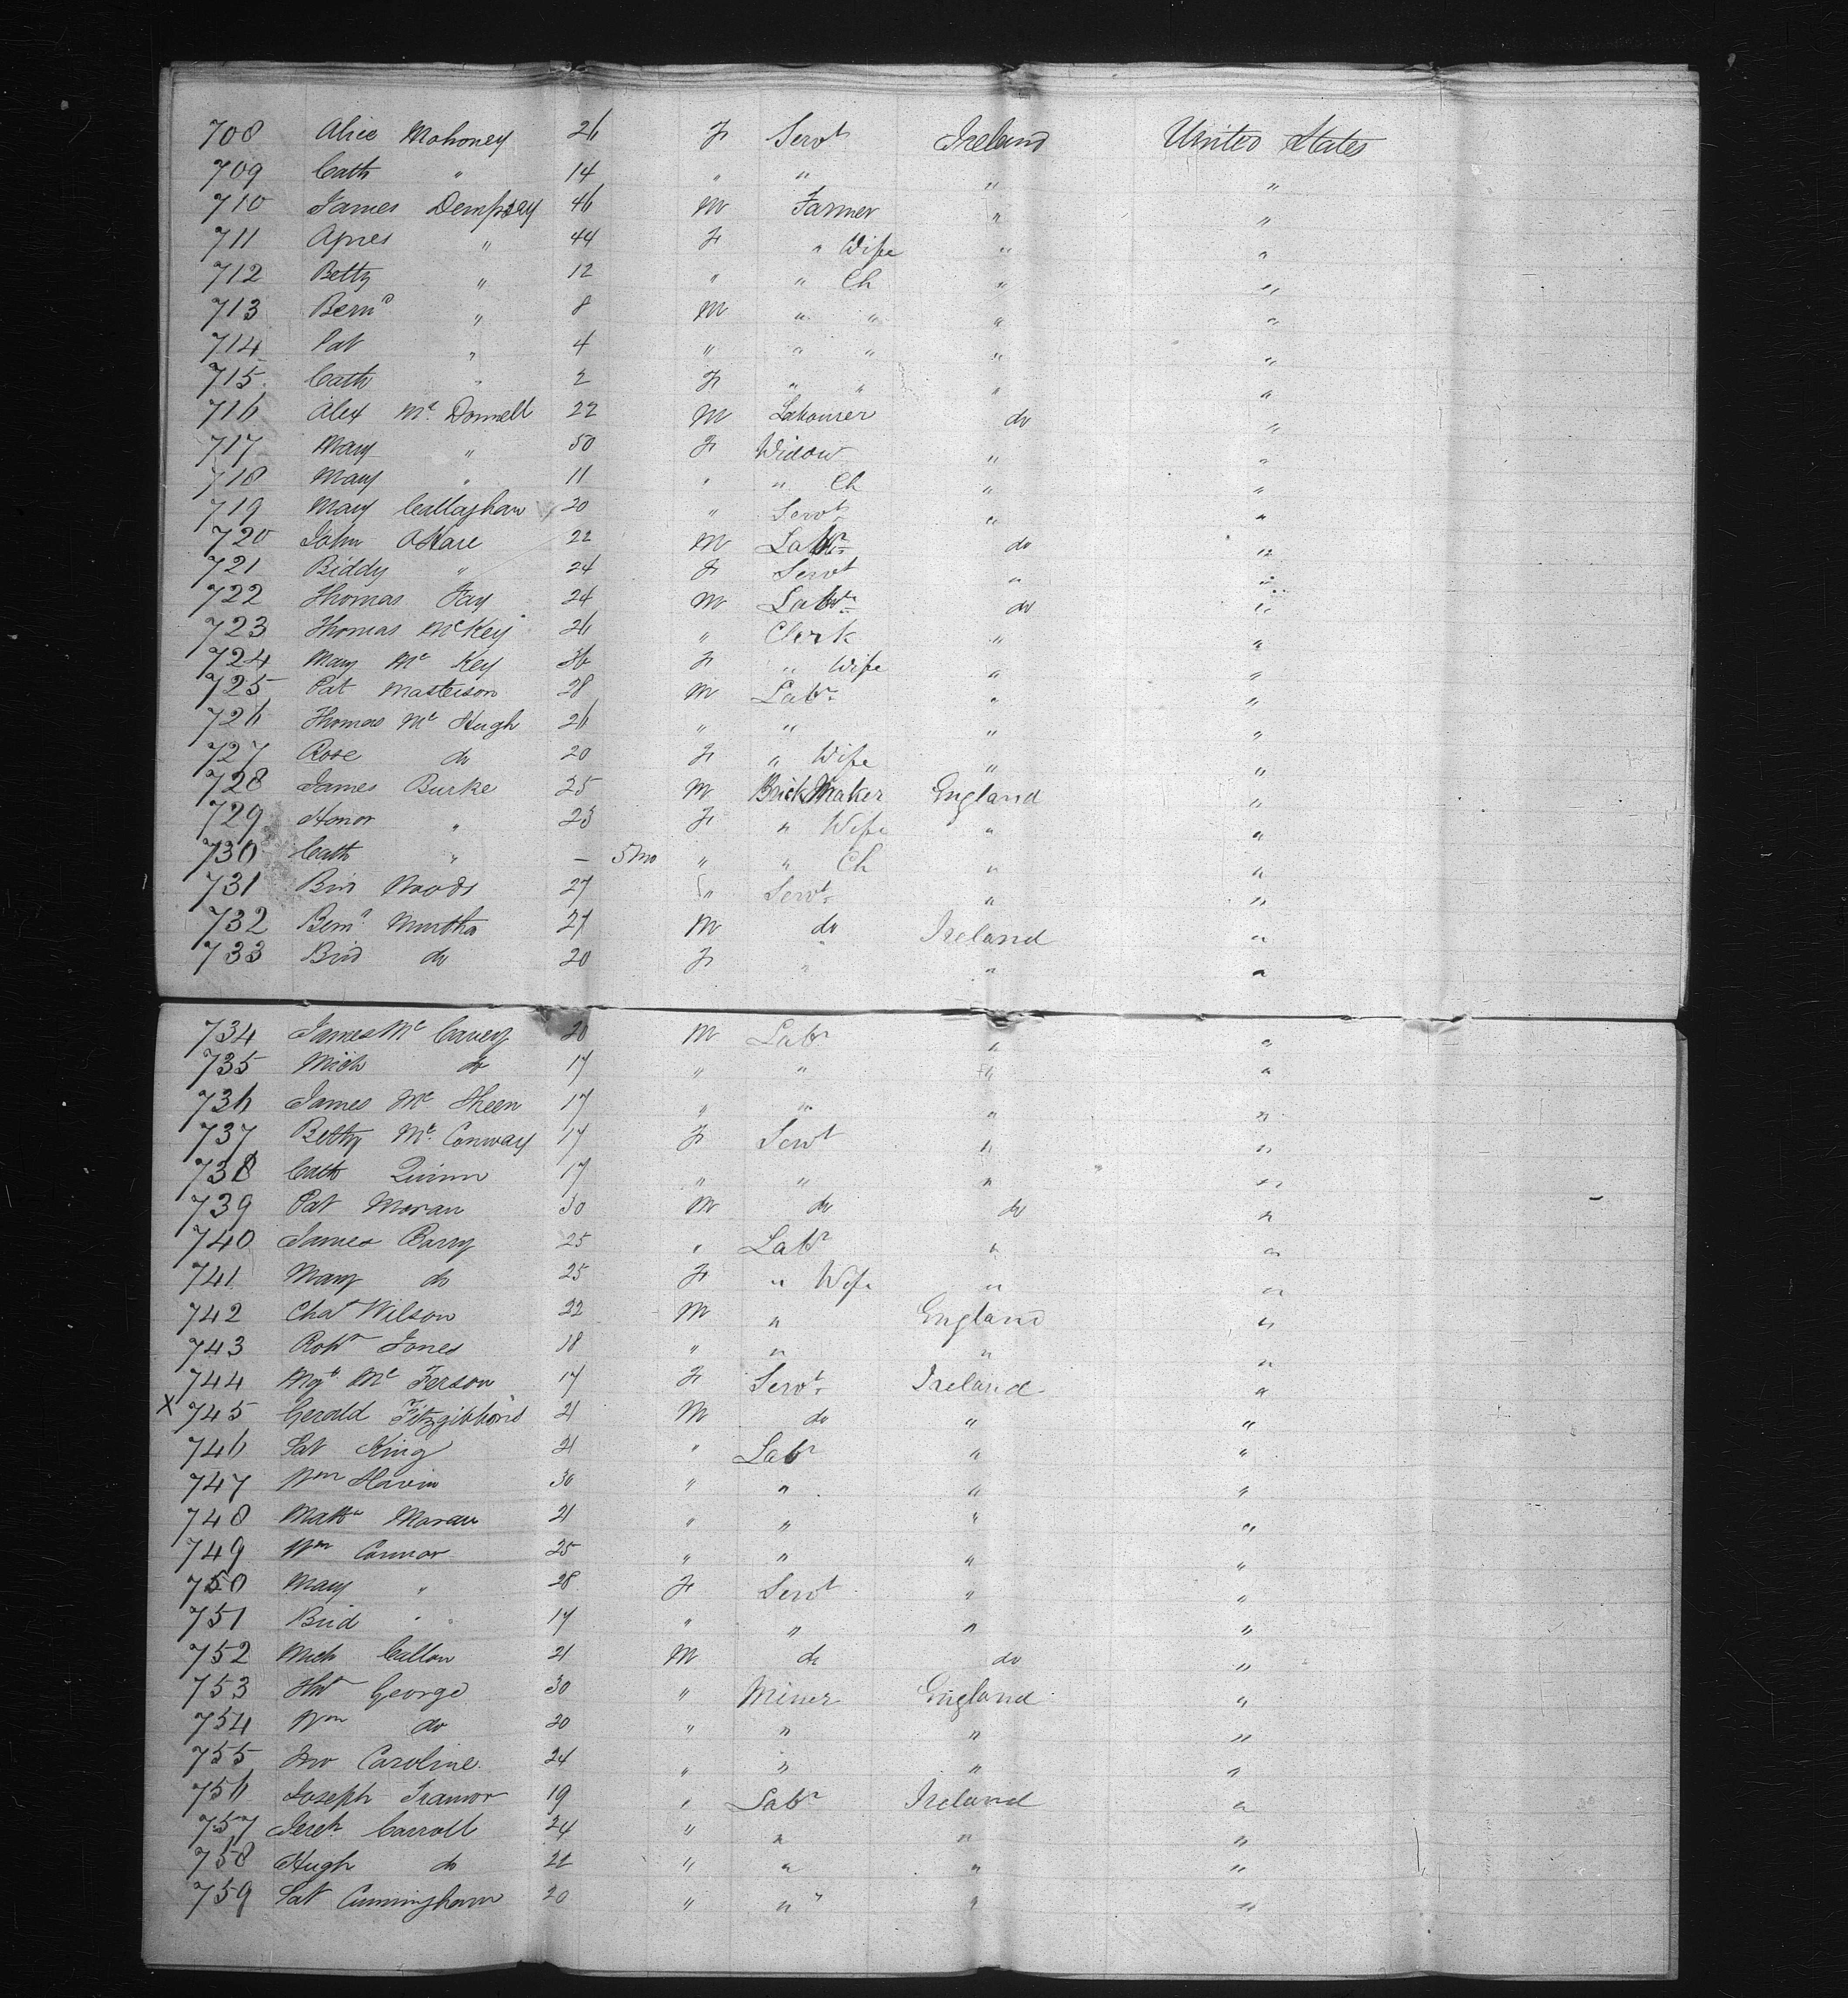 708 Alice Mahoney 26 F Servt Ireland United States
709 Cath " 14 " " " "
710 James Dempsey 46 M Farmer " "
711 Agnes " 44 F " Wife " "
712 Betty " 12 " " Ch " "
713 Bernd " 8 M " " " "
714 Pat " 4 " " " " "
715 Cath " 2 F " " " "
716 Alex Mc Donnell 22 M Labourer do "
717 Mary " 50 F Widow " "
718 Mary " 11 " " Ch " "
719 Mary Callaghan 20 " Servt " "
720 John O'Hare 22 M Labr do "
721 Biddy " 24 F Servt " "
722 Thomas Fay 24 M Labr do "
723 Thomas McKey 26 " Clerk " "
724 Mary Mc Key 36 F " Wife " "
725 Pat Masterson 28 M Labr " "
726 Thomas Mc Hugh 26 " " " "
727 Rose do 20 F " Wife " "
728 James Burke 25 M Brick Maker England "
729 Honor " 23 F " Wife " "
730 Cath " — 5 mo " " Ch " "
731 Bird Woods 27 " Servt " "
732 Bernd Murtha 27 M do Ireland "
733 Bird do 20 F " " "
734 James Mc Cavey 20 M Labr " "
735 Mich do 17 " " " "
736 James Mc Skeen 17 " " " "
737 Betty Mc Conway 17 F Servt " "
738 Cath Quinn 17 " " " "
739 Pat Moran 30 M do do "
740 James Barry 25 " Labr " "
741 Mary do 25 F " Wife " "
742 Chas Wilson 22 M " England "
743 Robt Jones 18 " " " "
744 Mgt Mc Ferson 17 F Servt Ireland "
X 745 Gerald Fitzgibbons 21 M do " "
746 Pat King 21 " Labr " "
747 Wm Slavin 30 " " " "
748 Matw Moran 21 " " " "
749 Wm Connor 25 " " " "
750 Mary " 28 F Servt " "
751 Brid " 17 " " " "
752 Mich Callan 21 M do do "
753 George 30 " Miner England "
754 Wm do 20 " " " "
755 Jno Caroline 24 " " " "
756 Joseph Trainor 19 " Labr Ireland "
757 Jereh Carroll 24 " " " "
758 Hugh do 22 " " " "
759 Pat Cunningham 20 " " " "